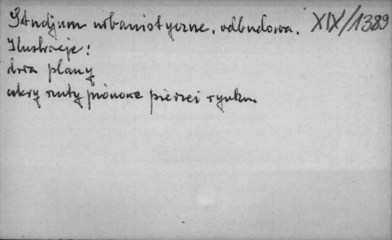 Studjum urbanistyczne, odbudowa. XIX/1389
Ilustracje:
dwa plany
rzuty pionowe pierzei rynku